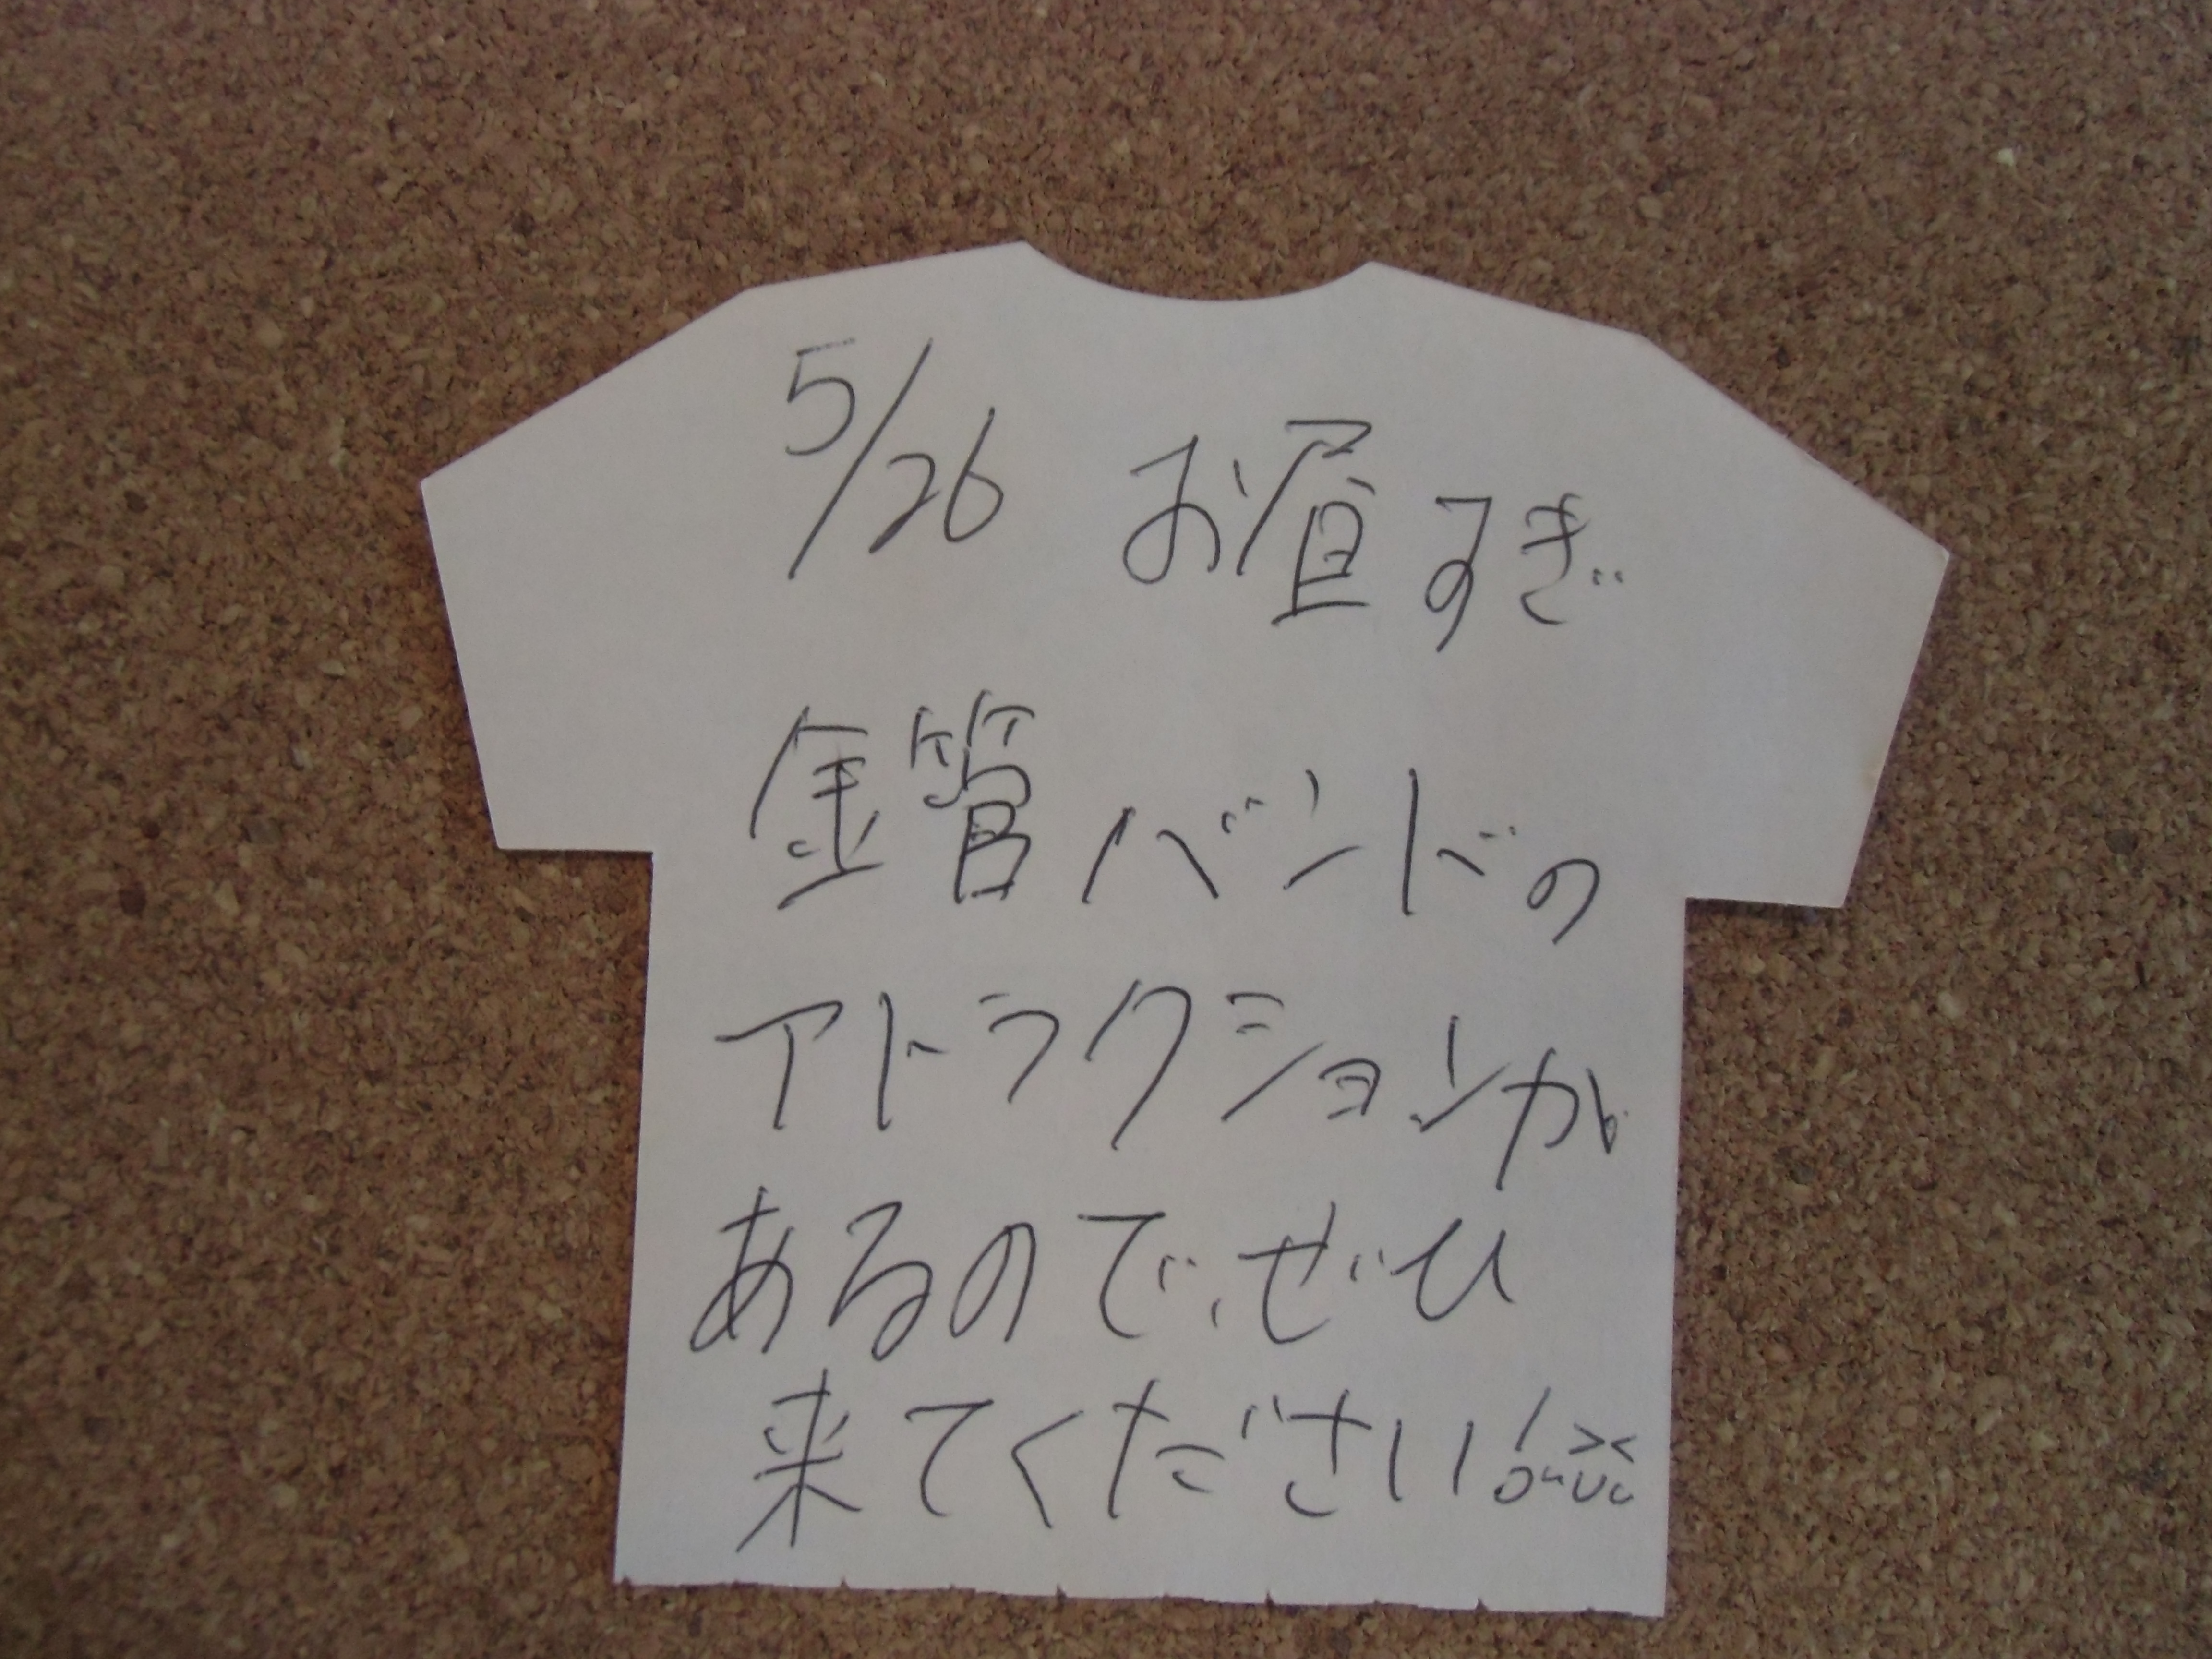 5/26 お昼すぎ
金管バンドの
アトラクションが
あるので、ぜひ
来てください!